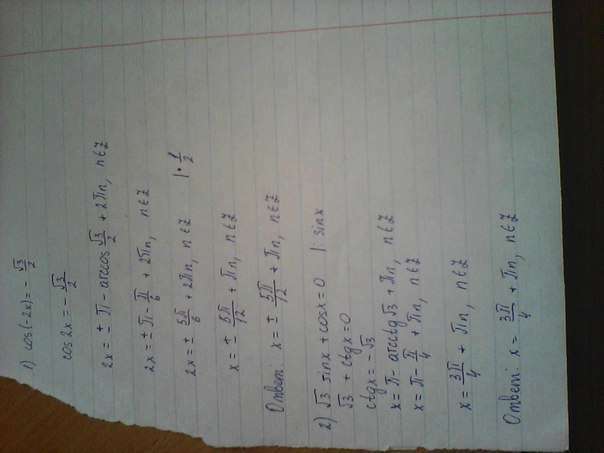 1) cos(-2x) = -√3/2
cos 2x = -√3/2
2x = ± π - arccos √3/2 + 2πn, n∈Z
2x = ± π - π/6 + 2πn, n∈Z
2x = ± 5π/6 + 2πn, n∈Z | · 1/2
x = ± 5π/12 + πn, n∈Z
Ответ: x = ± 5π/12 + πn, n∈Z
2) √3 sinx + cosx = 0 |: sinx
√3 + ctgx = 0
ctgx = -√3
x = π - arcctg √3 + πn, n∈Z
x = π - π/4 + πn, n∈Z
x = 3π/4 + πn, n∈Z
Ответ: x = 3π/4 + πn, n∈Z